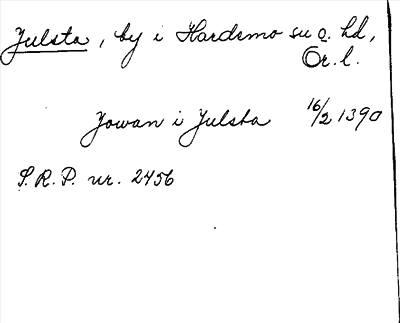 Julsta, by i Hardemo sn o. hd,
Ör. l.
Jowan i Julsta 16/2 1390
S.R.P. nr. 2456